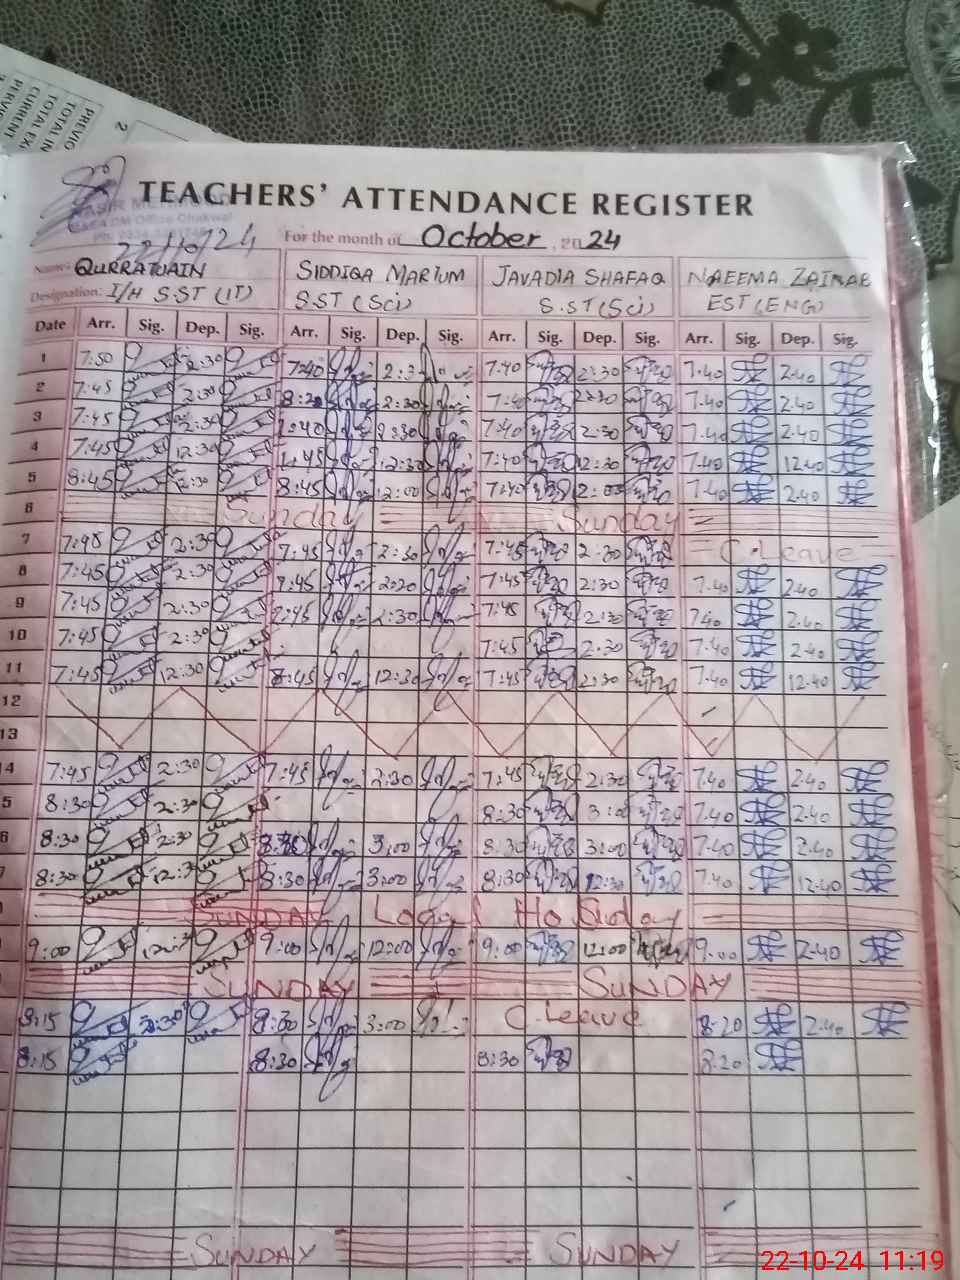 PREVIO
TOTAL IN
CURRENT
TOTAL EX
PERVIO
2
TEACHERS' ATTENDANCE REGISTER
22/10/24
For the month of October, 2024
Name: QURRATUAIN SIDDIQA MARIUM JAVADIA SHAFAQ NAEEMA ZAINAB
Designation: I/H S.ST (IT) S.ST (Sci) S.ST (Sci) EST (ENG)
Date Arr. Sig. Dep. Sig. Arr. Sig. Dep. Sig. Arr. Sig. Dep. Sig. Arr. Sig. Dep. Sig.
1 7:50 2:30 7:40 2:3 7:40 2:30 7.40 2.40
2 7:45 2:30 2:30 7:40 2:30 7.40 2.40
3 7:45 2:30 7:40 2:30 7:40 2:30 7.40 2.40
4 7:45 12:30 12:30 7:40 12:30 7.40 12.40
5 8:45 12:30 8:45 12:00 7:40 7.40 2.40
6 Sunday Sunday
7 7:45 2:30 7:45 2:30 7:45 2:30 C.Leave
8 7:45 2:30 7:45 2:20 7:45 2:30 7.40 2.40
9 7:45 2:30 7:45 2:30 7:45 2:30 7.40 2.40
10 7:45 2:30 7:45 2:30 7.40 2.40
11 7:45 12:30 8:45 12:30 7:45 7.40 12.40
12
13
14 7:45 2:30 7:45 2:30 7:45 2:30 7.40 2.40
5 8:30 2:30 8:30 3:00 7.40 2.40
6 8:30 2:30 8:30 3:00 8:30 3:00 7.40 2.40
7 8:30 12:3 8:30 3:00 8:30 12:30 7.40 12.40
SUNDAY Local Holiday
9:00 12:3 9:00 12:00 9:00 12:00 9.00 2.40
SUNDAY SUNDAY
8:15 8:30 3:00 C.Leave 8.20 2.40
8:15 8:30 8:30 8.20
SUNDAY SUNDAY
22-10-24 11:19